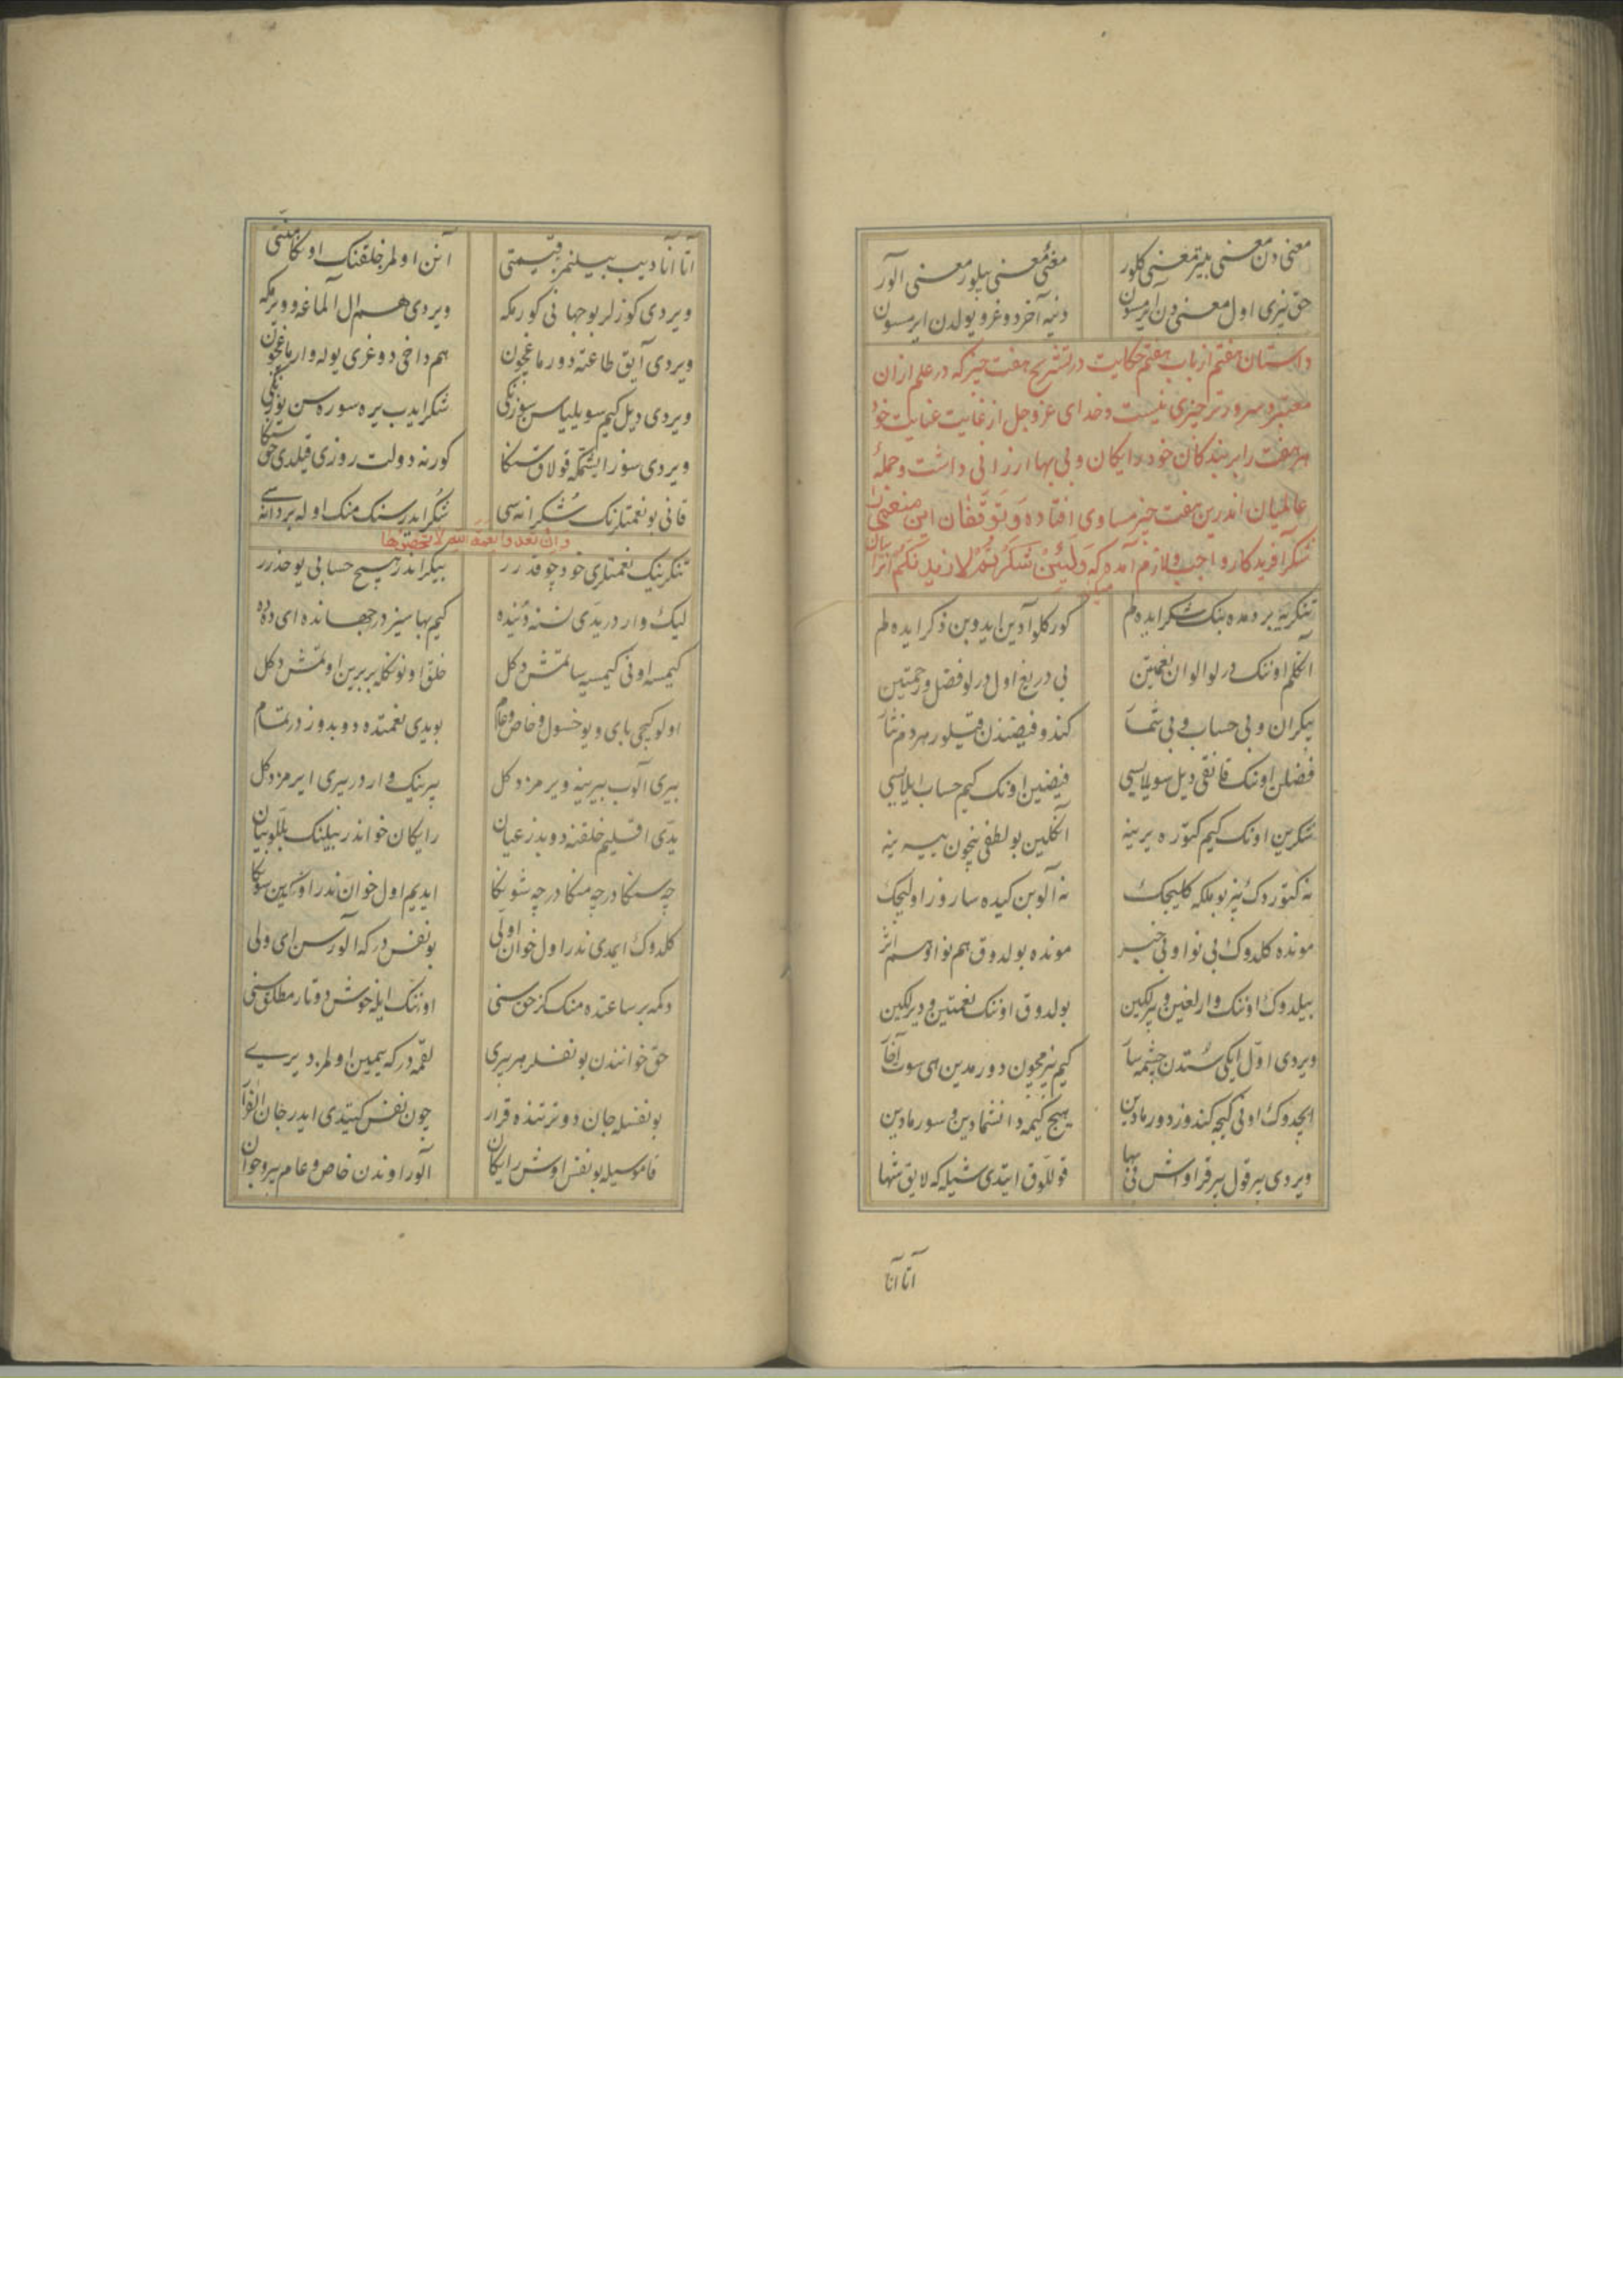 معنی دن معنی بلیتر معنی کلور معنی معنی بیلور معنی آلور
حق بزی اول معنی دن آیرمسون دنیه آخر دوغرو یولدن ایرمسون
داستان هفتم از باب هفتم حکایت در تشریح هفت چیز که در علم ازان
معتبر و سرورتر چیزی نیست و خدای عز و جل از غایت عنایت خود
هر هفت را بر بندکان خود رایکان و بی بها ارزانی داشت و جملهٔ
عالمیان اندرین هفت چیز مساوی افتاده
شکر آفریدکار واجب و لازم آمده که وَلَئِنْ شَکَرْتُمْ لازیدنکم
تنکریه بر دمده بنک شکر ایده لم کورکلو آدین ایدوبن ذکر ایده لم
اکلم اوننک درلو الوان نعمتین بی دریغ اول درلو فضل و رحمتین
بیکران و بی حساب و بی شمار کندو فیضندن قیلور هر دم نثار
فضلن اوننک قانقی دیل سویلایسی فیضین اونک کیم حساب ایلایسی
شکرین اونک کیم کتوره یرینه اکلین بو لطفی نیچون بیرینه
نه کتوردک بیز بو ملکه کلیجک نه آلوبن کیده ساروز اولیجک
مونده کلدوک بی نوا و بی خبر مونده بولدوق هم نوا و هم اثر
بیلدوک اوننک وارلغین و بیرلکین بولدوق اوننک نعمتین و دیرلکین
ویردی اول ایکی سُتدن چشمه سار کیم بیزمچون دورمدین ای سوت آقار
ایچدوک اونی کیجه کندوز دورمادین هیچ کیمه دانشمادین و سورمادین
ویردی بیر قول بیر قراواش بی بها قوللوق ایتدی شیله که لایق شها
آتا آنا
آتا آنا دیب بیلنمز قیمتی آنن اولمز خلقنک اوکا منتی
ویردی کوزلر بو جهانی کورمکه ویردی هم ال آلماغه و ویرمکه
ویردی آیق طاعته دورماغچون هم داخی دوغری یوله وارماغچون
ویردی دیل کیم سویلیاسن سوزنکی شکر ایدب یره سوره سن یوزنکی
ویردی سوز ایشتمکه قولاق سنکا کورنه دولت روزی قیلدی حق سنکا
قانی بو نعمتلرنک شکرانه سی شکر ایدرسنک منک اوله بر دانه سی
وان تعدوا نعمة الله لا تحصوها
تنکرینک نعمتلری خود چوقدرر بیکراندر هیچ حسابی یوخدرر
لیک واردر یدی نسنه دُنیده کیم بها سیزدر جهانده ای دده
کیمسه اونی کیمسیه ساتمش دکل خلق اونونکله بربرین اوتمش دکل
اولو کیچی بای و یوخسول و خاص و عام بو یدی نعمتده دوبدوزدر تمام
بیری آلوب بیرینه ویرمز دکل بیرینک واردر بیری ایرمز دکل
یدی اقلیم خلقنه دوبدز عیان رایکان خواندر بیلنک بللو بیان
چه سنکا در چه منکا در چه شونکا ایدیم اول خوان ندر اوکدین سونکا
کلدوک ایمدی ندر اول خوان اولی بو نفس در که آلورسن ای ولی
دکمه بر ساعتده منک کز حق سنی اوننک ایله خوش دوتار مطلق سنی
حق خوانندن بو نفسلر هر بیری لقمه در که ییمین اولمز دیری
بو نفسله جان دوتر تنده قرار چون نفس کیتدی ایدر جان الفرار
قاموسیله بو نفس اوش رایکان آلور اوندن خاص و عام پیر و جوان